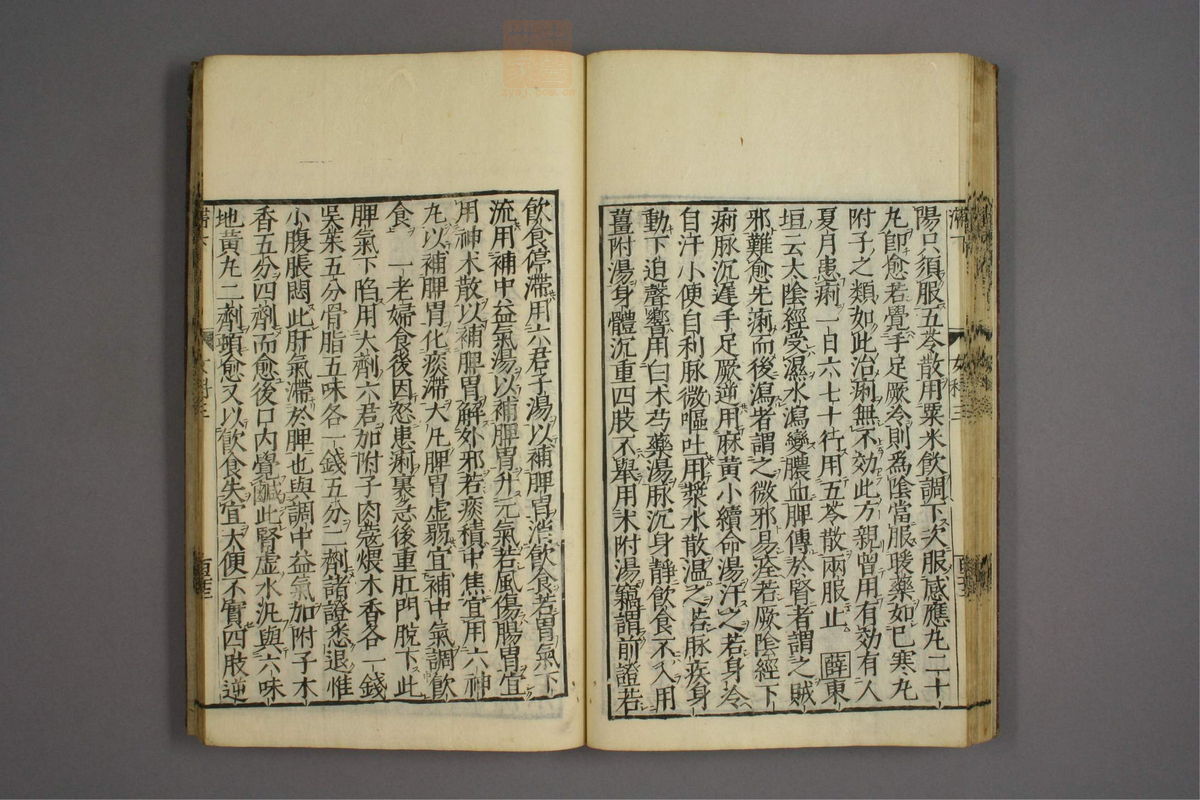 陽只須服五苓散用粟米飲調下次服感應丸二十
丸卽愈若覺手足厥冷則爲陰當服暖藥如已寒丸
附子之類如此治痢無不効此方親曾用有効有人
夏月患痢一日六七十行用五苓散兩服止 薛 東
垣云太陰經受濕水瀉變膿血脾傳於腎者謂之賊
邪難愈先痢而後瀉者謂之微邪易痊若厥陰經下
痢脉沉遲手足厥逆用麻黃小續命湯汗之若身冷
自汗小便自利脉微嘔吐用漿水散温之若脉疾身
動下迫聲響用白朮芍藥湯脉沉身靜飲食不入用
薑附湯身體沉重四肢不舉用朮附湯竊謂前證若
飲食停滯用六君子湯以補脾胃消飲食若胃氣下
流用補中益氣湯以補脾胃升元氣若風傷腸胃宜
用神朮散以補脾胃解外邪若痰積中焦宜用六神
丸以補脾胃化痰滯大凡脾胃虛弱宜補中氣調飲
食 一老婦食後因怒患痢裏急後重肛門脫下此
脾氣下陷用大劑六君加附子肉蔲煨木香各一錢
吳茱五分骨脂五味各一錢五分二劑諸證悉退惟
小腹脹悶此肝氣滯於脾也與調中益氣加附子木
香五分四劑而愈後口内覺鹹此腎虛水泛與六味
地黃丸二劑頓愈又以飲食失宜大便不實四肢逆
女科三